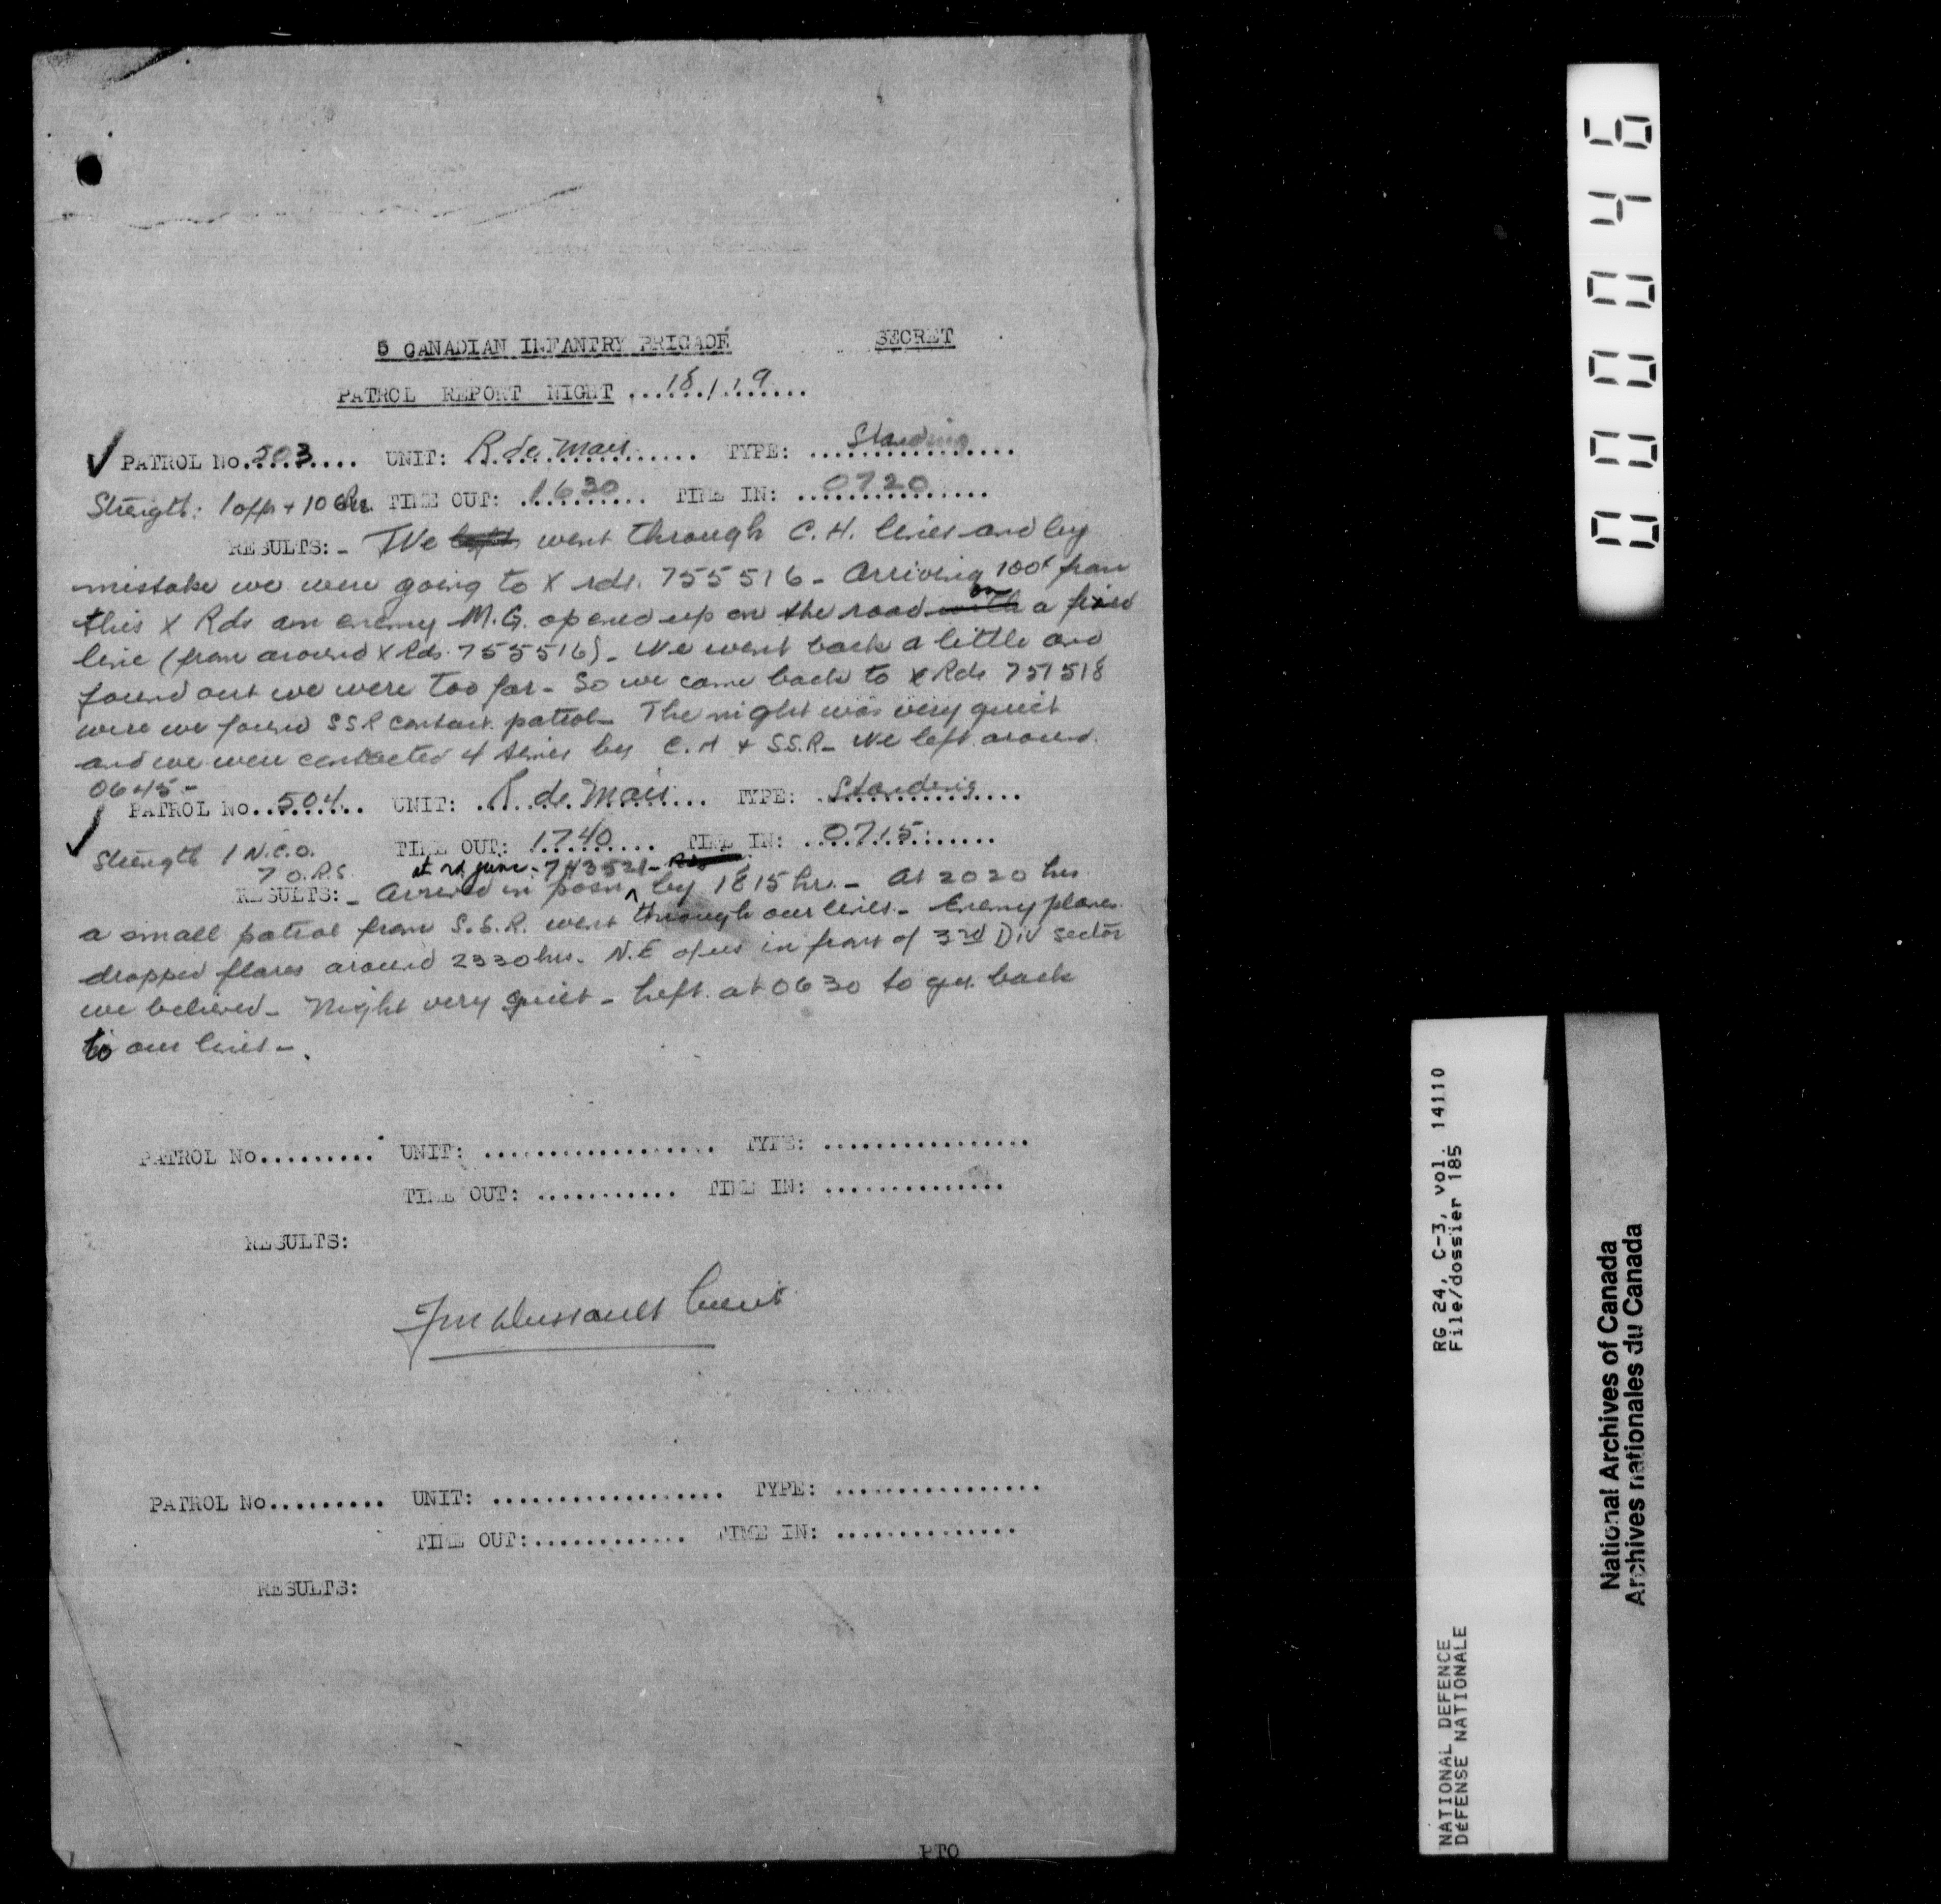 5 CANADIAN INFANTRY BRIGADE SECRET
PATROL REPORT NIGHT ...18/19.....
✓ PATROL No.503.... UNIT: R de Mais....... TYPE: Standing
Strength: 1 offr + 10 ORs. TIME OUT: .1630.... TIME IN: ..0720......
RESULTS:- We left went through C.H. lines and by
mistake we were going to X rds. 755516 - Arriving 100x from
this X Rds an enemy M.G. opened up on the road with on a fixed
line (from around X Rds 755516). We went back a little and
found out we were too far - So we came back to X Rds 757518
were we found SSR contact patrol - The night was very quiet
and we were contacted 4 times by C.H + S.S.R - We left around
0645 -
PATROL No..504... UNIT: R. de Mais... TYPE: Standing
✓ Strength 1 N.C.O. TIME OUT: 1740.... TIME IN: ..0715......
7 O.R.S. at rd junc. 743521 -
RESULTS:- Arrived in posn ^ by 1815 hr. - At 2020 hrs
a small patrol from S.S.R. went through our lines - Enemy planes
dropped flares around 2330 hrs. N.E of us in front of 3rd Div sector
we believed - Night very quiet - Left at 0630 to get back
to our lines -.
PATROL No......... UNIT: .................. TYPE: ................
TIME OUT: ........... TIME IN: ..............
RESULTS:
Dussault Lieut
PATROL No......... UNIT: .................. TYPE: ................
TIME OUT:............ TIME IN: ..............
RESULTS:
PTO
000046
RG 24, C-3, vol. 14110
File/dossier 185
NATIONAL DEFENCE
DÉFENSE NATIONALE
National Archives of Canada
Archives nationales du Canada